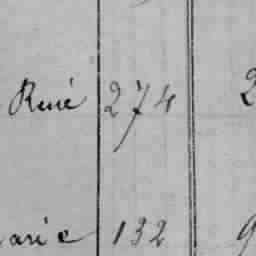 René 274 2
arie 132 9